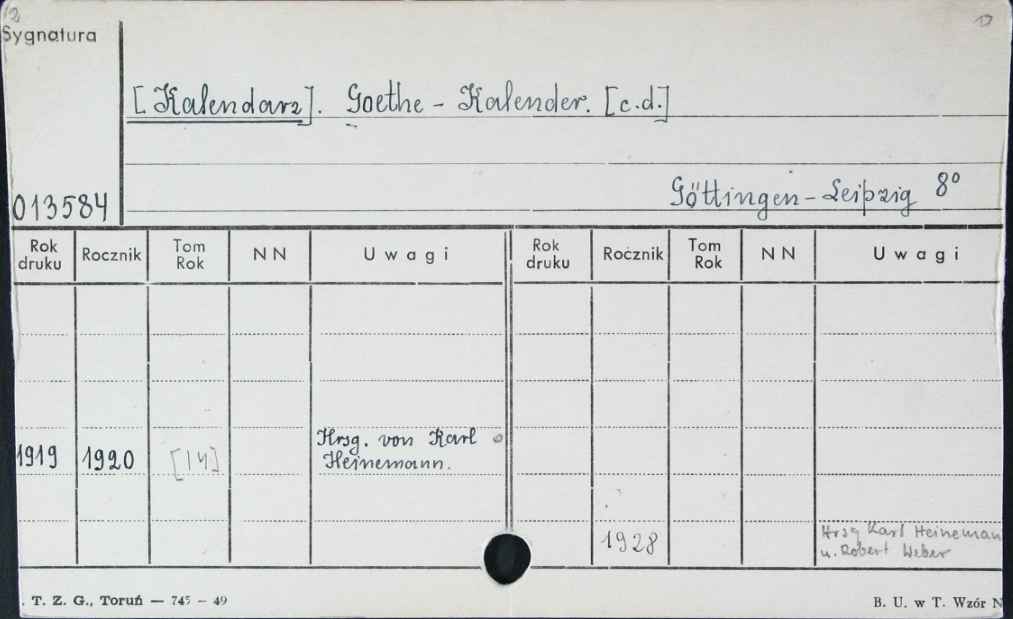 Sygnatura
[Kalendarz]. Goethe-Kalender. [c.d.]
Göttingen-Leipzig 8°
013584
Rok druku Rocznik Tom Rok NN Uwagi Rok druku Rocznik Tom Rok NN Uwagi
1919 1920 [14] Hrsg. von Karl
Heinemann.
1928 Hrsg Karl Heineman
u. Robert Weber
. T. Z. G., Toruń — 745 – 49 B. U. w T. Wzór N